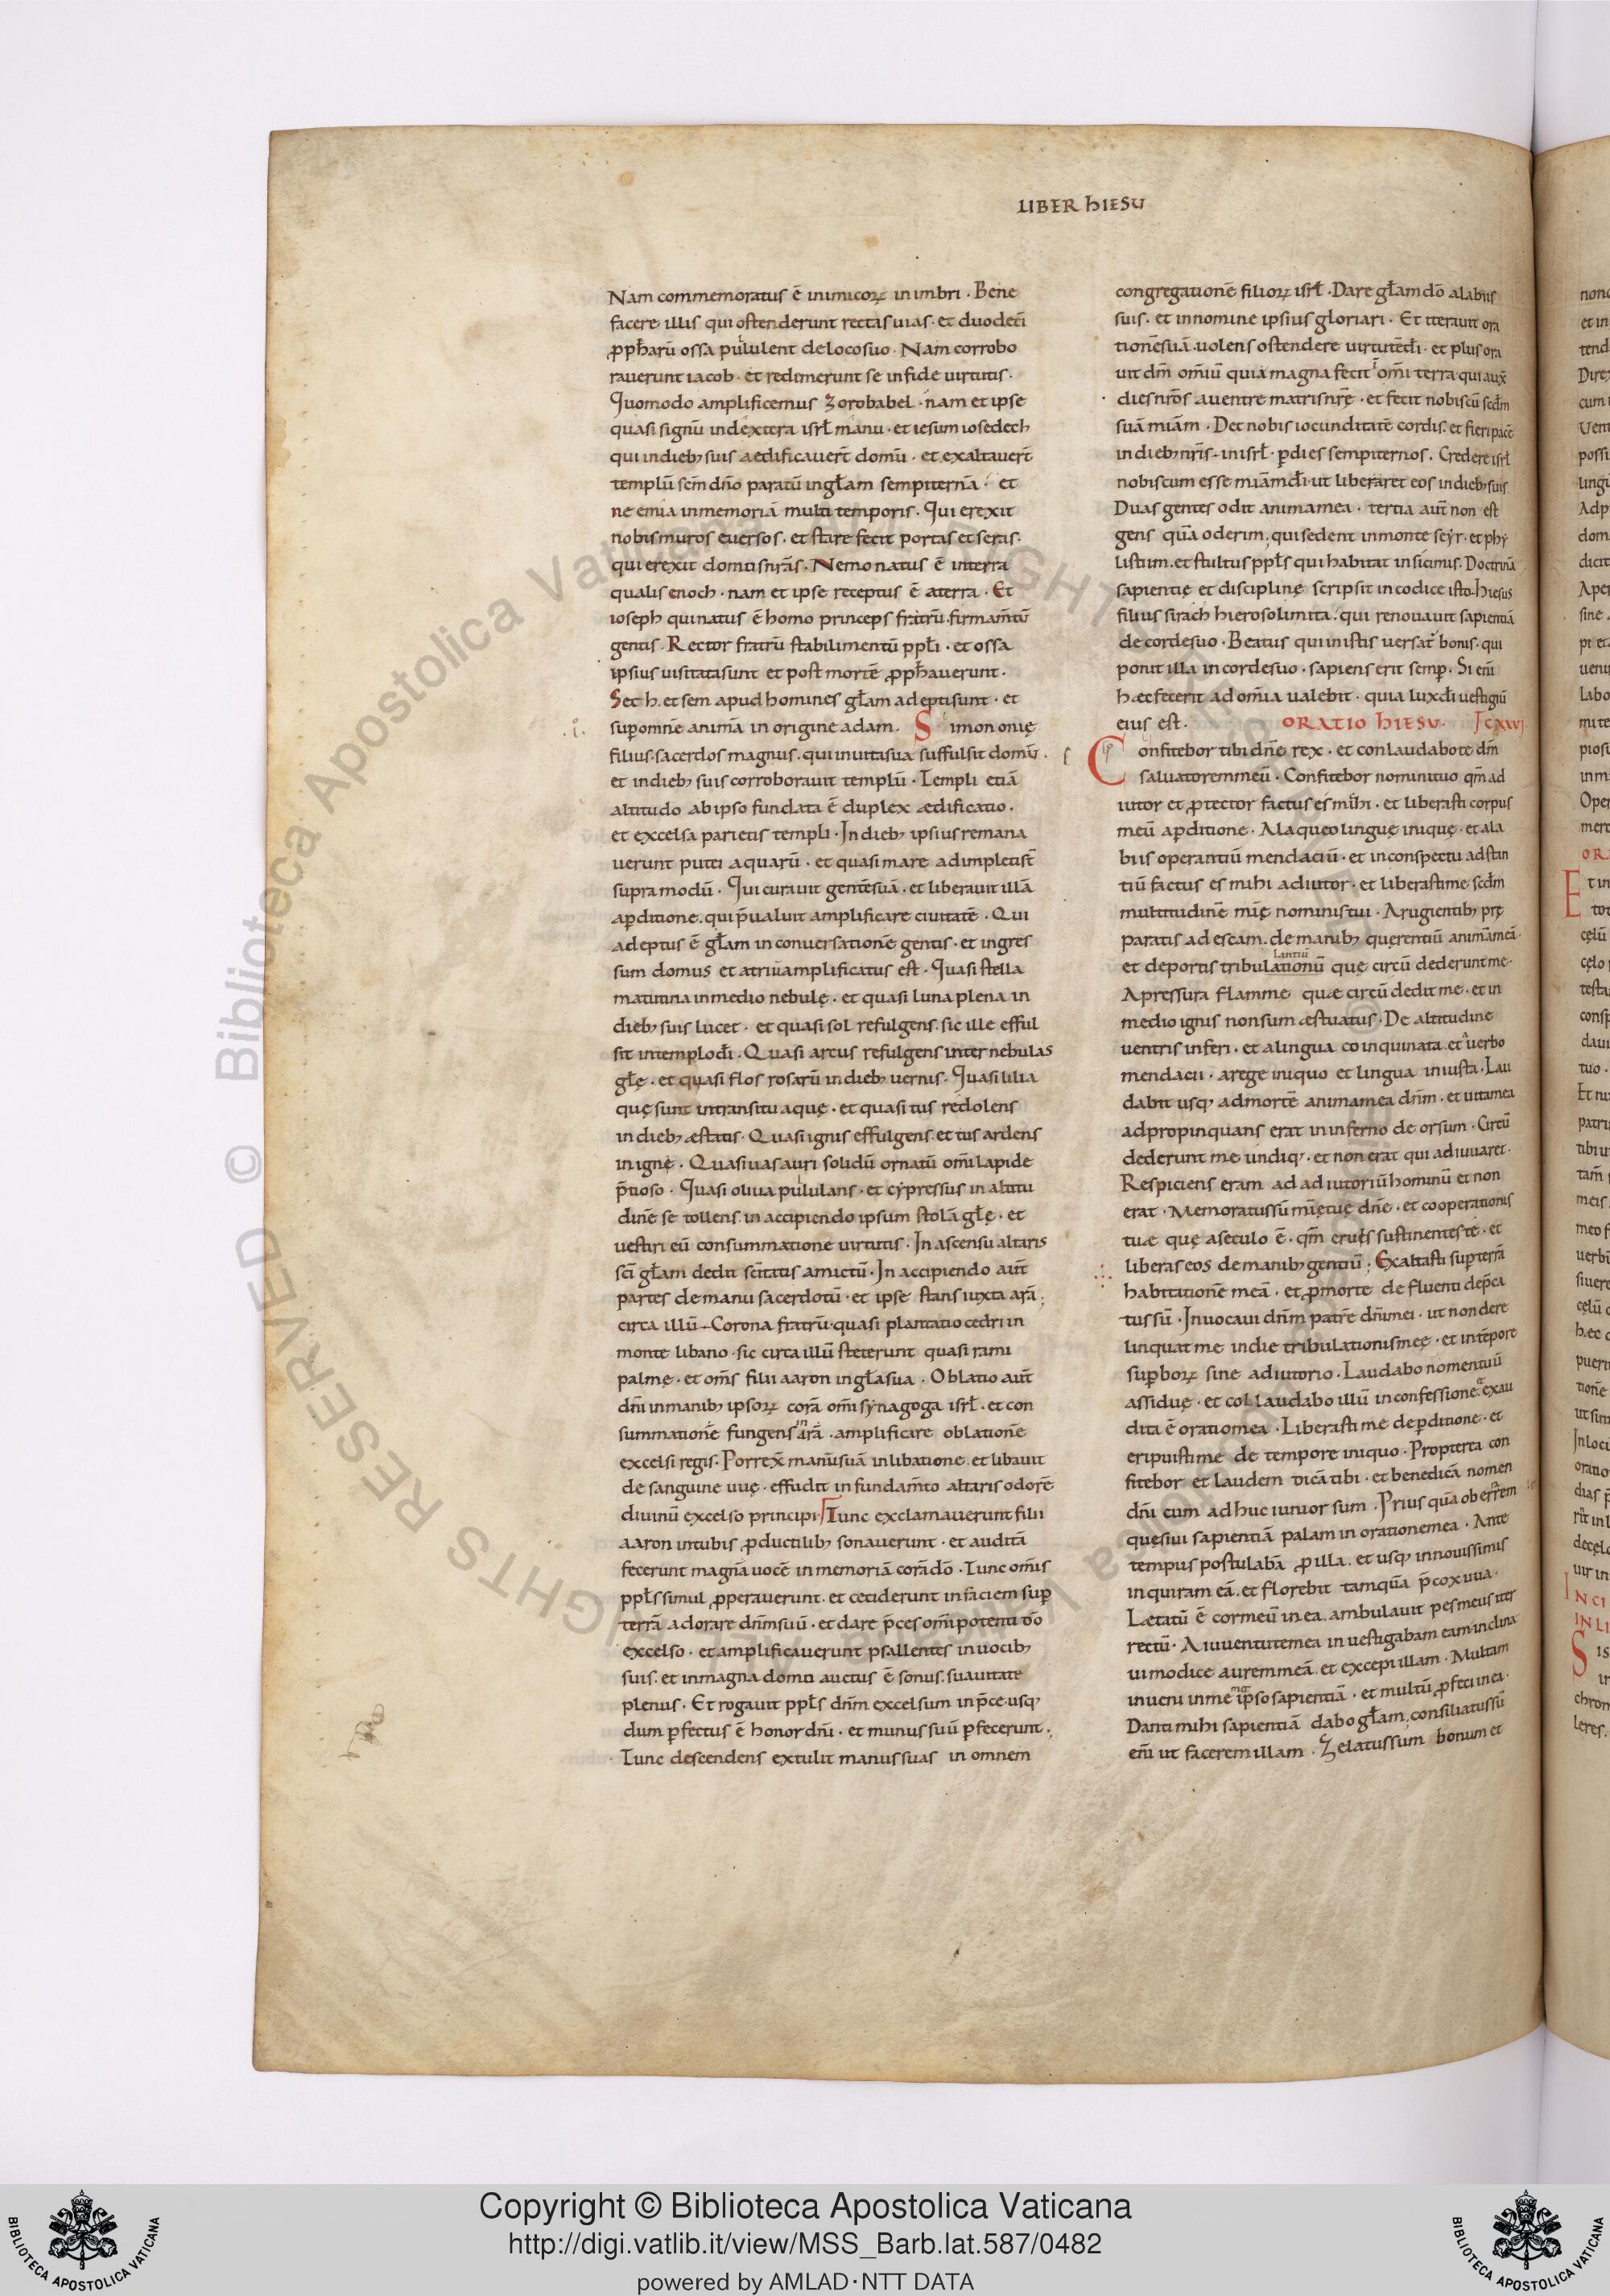 LIBER hIESU
Nam commemoratus ē inimicoꝝ in imbri · Bene
facere illis qui ostenderunt rectas uias · et duodeci
ꝓph̄arū ossa pululent de loco suo · Nam corrobo
rauerunt iacob · et redimerunt se in fide uirtutis ·
Quomodo amplificemus Zorobabel · nam et ipse
quasi signū in dextera isrł manu · et iesum iosedech
qui in dieb; suis aedificauer̄t domū · et exaltauer̄t
templū sc̄m dn̄o paratū in głam sempiternā · et
neemia in memoriā multi temporis · Qui erexit
nobis muros euersos · et stare fecit portas et seras ·
qui erexit domos nr̄as · Nemo natus ē in terra
qualis enoch · nam et ipse receptus ē a terra · Et
ioseph qui natus ē homo princeps fratrū · firmam̄tū
gentis · Rector fratrū stabilimentū ppłi · et ossa
ipsius uisitata sunt et post mortē ꝓph̄auerunt ·
Set h̄ et sem apud homines głam adepti sunt · et
sup omnē animā in origine adam · Simon onię
filius · sacerdos magnus · qui in uita sua suffulsit domū ·
et in dieb; suis corroborauit templū · Templi etiā
altitudo ab ipso fundata ē duplex ædificatio ·
et excelsa parietis templi · In dieb; ipsius remana
uerunt putei aquarū · et quasi mare adimpleti st̄
supra modū · Qui curauit gentē suā · et liberauit illā
a pditione · qui p̄ualuit amplificare ciuitatē · Qui
adeptus ē głam in conuersationē gentis · et ingres
sum domus et atriū amplificatus est · Quasi stella
matutina in medio nebulę · et quasi luna plena in
dieb; suis lucet · et quasi sol refulgens · sic ille efful
sit in templo dī · Quasi arcus refulgens inter nebulas
głę · et quasi flos rosarū in dieb; uernis · Quasi lilia
quę sunt in transitu aquę · et quasi tus redolens
in dieb; æstatis · Quasi ignis effulgens · et tus ardens
in igne · Quasi uas auri solidū ornatū om̄i lapide
p̄tioso · Quasi oliua pululans · et cypressus in altitu
dinē se tollens · in accipiendo ipsum stolā głę · et
uestiri eū consummatione uirtutis · In ascensu altaris
sc̄i głam dedit sc̄itatis amictū · In accipiendo aut̄
partes de manu sacerdotū · et ipse stans iuxta arā ;
circa illū · Corona fratrū · quasi plantatio cedri in
monte libano · sic circa illū steterunt quasi rami
palmę · et om̄s filii aaron in gła sua · Oblatio aut̄
dn̄i in manib; ipsoꝝ corā om̄i synagoga isrł · et con
summationē fungens in arā · amplificare oblationē
excelsi regis · Porrex̄ manū suā in libatione · et libauit
de sanguine uuę · effudit in fundam̄to altaris odorē
diuinū excelso principi · Tunc exclamauerunt filii
aaron in tubis ꝓductilib; sonauerunt · et auditā
fecerunt magnā uocē in memoriā corā dō · Tunc om̄is
ppłs simul ꝓperauerunt · et ceciderunt in faciem sup
terrā adorare dn̄m suū · et dare p̄ces om̄ipotenti dō
excelso · et amplificauerunt psallentes in uocib;
suis · et in magna domo auctus ē sonus · suauitate
plenus · Et rogauit ppłs dn̄m excelsum in p̄ce · usq;
dum pfectus ē honor dn̄i · et munus suū pfecerunt ·
Tunc descendens extulit manus suas in omnem
congregationē filioꝝ isrł · Dare głam dō a labiis
suis · et in nomine ipsius gloriari · Et iterauit ora
tionē suā · uolens ostendere uirtutē dī · et plus ora
uit dm̄ om̄iū quia magna fecit ī om̄i terra · qui aux̄
dies nr̄os a uentre matris nr̄ę · et fecit nobiscū scdm̄
suā mīam · Det nobis iocunditatē cordis · et fieri pacē
in dieb; nr̄is · in isrł · p dies sempiternos · Credere isrł
nobiscum esse mīam dī ut liberaret eos in dieb; suis
Duas gentes odit anima mea · tertia aut̄ non est
gens quā oderim · qui sedent in monte seyr · et phy
listiim · et stultus ppłs qui habitat in sicimis · Doctrinā
sapientię et disciplinę scripsit in codice isto · hiesus
filius sirach hierosolimita · qui renouauit sapientiā
de corde suo · Beatus qui in istis uersat̄ bonis · qui
ponit illa in corde suo · sapiens erit semp · Si eni
hæc fecerit ad om̄ia ualebit · quia lux dī uestigiū
eius est · ORATIO hIESU ·
Confitebor tibi dn̄e rex · et conlaudabo te dm̄
saluatorem meū · Confitebor nomini tuo qm̄ ad
iutor et ꝓtector factus es mihi · et liberasti corpus
meū a pditione · A laqueo linguę iniquę · et a la
biis operantiū mendaciū · et in conspectu adstan
tiū factus es mihi adiutor · et liberasti me scdm̄
multitudinē mīę nominis tui · A rugientib; pre
paratis ad escam · de manib; querentiū animā meā ·
et de portis tribulationū que circū dederunt me ·
lantiū
A pressura flamme quæ circū dedit me · et in
medio ignis non sum æstuatus · De altitudine
uentris inferi · et a lingua coinquinata · et a uerbo
mendacii · a rege iniquo et lingua iniusta · Lau
dabit usq; ad mortē anima mea dn̄m · et uita mea
adpropinquans erat in inferno deorsum · Circū
dederunt me undiq; · et non erat qui adiuuaret ·
Respiciens eram ad adiutoriū hominū et non
erat · Memoratus sū mīę tuę dn̄e · et cooperationis
tuæ quę a seculo ē · qm̄ eruis sustinentes te · et
liberas eos de manib; gentiū ; Exaltasti sup terrā
habitationē meā · et ꝓ morte defluenti dep̄ca
tus sū · Inuocaui dn̄m patrē dn̄i mei · ut non dere
linquat me in die tribulationis meę · et in tēpore
supboꝝ sine adiutorio · Laudabo nomen tuū
assiduę · et collaudabo illū in confessione · et exau
dita ē oratio mea · Liberasti me de pditione · et
eripuisti me de tempore iniquo · Propterea con
fitebor et laudem dicā tibi · et benedicā nomen
dn̄i cum adhuc iunior sum · Prius quā oberrem
quesiui sapientiā palam in oratione mea · Ante
tempus postulabā ꝓ illa · et usq; in nouissimis
inquiram eā · et florebit tamquā p̄cox uua ·
Lætatū ē cor meū in ea · ambulauit pes meus iter
rectū · A iuuentute mea inuestigabam eam · inclina
ui modice aurem meā · et excepi illam · Multam
inueni in me ipso sapientiā · et multū ꝓfeci in ea ·
Danti mihi sapientiā dabo głam · consiliatus sū
eni ut facerem illam · Zelatus sum bonum et
Copyright © Biblioteca Apostolica Vaticana
http://digi.vatlib.it/view/MSS_Barb.lat.587/0482
powered by AMLAD·NTT DATA
BIBLIOTECA APOSTOLICA VATICANA
BIBLIOTECA APOSTOLICA VATICANA